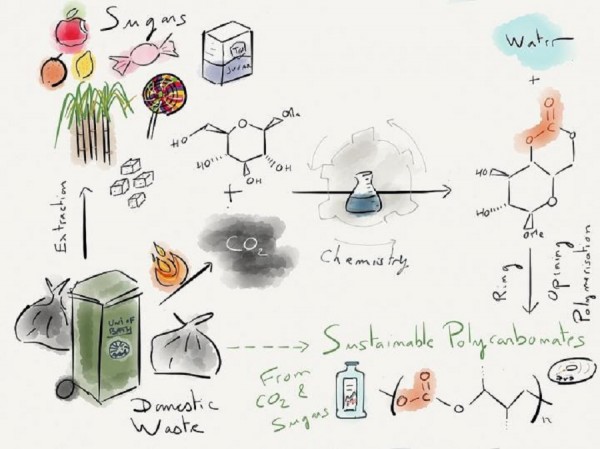 Sugars
T&L
Sugar
Water
+
O
O
C
O
HO
O
OMe
HO
OH
OH
+
HO
O
HO
OMe
Extraction
CO2
Chemistry
Ring
Opining
Polymerisation
Univ of
Bath
Sustainable Polycarbonates
From
CO2 &
Sugars
Domestic
Waste
O
O
C
O
n